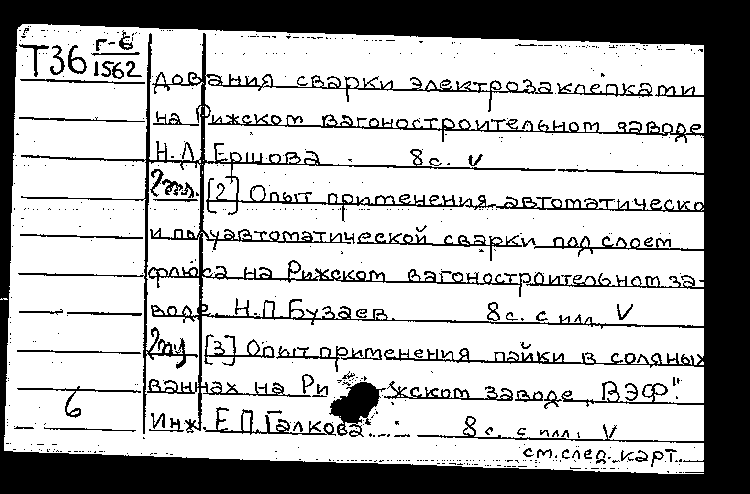 Т36 г-6
1562
дования сварки электрозаклепками
на Рижском вагоностроительном заводе
Н.Д. Ершова. 8 с. V
[2] Опыт применения автоматическо
и полуавтоматической сварки под слоем
флюса на Рижском вагоностроительном за-
воде. Н.П. Бузаев. 8 с. с илл. V
[3] Опыт применения пайки в соляных
ваннах на Рижском заводе „ВЭФ".
6
Инж. Е.П. Галкова. 8 с. с илл. V
см. след. карт.